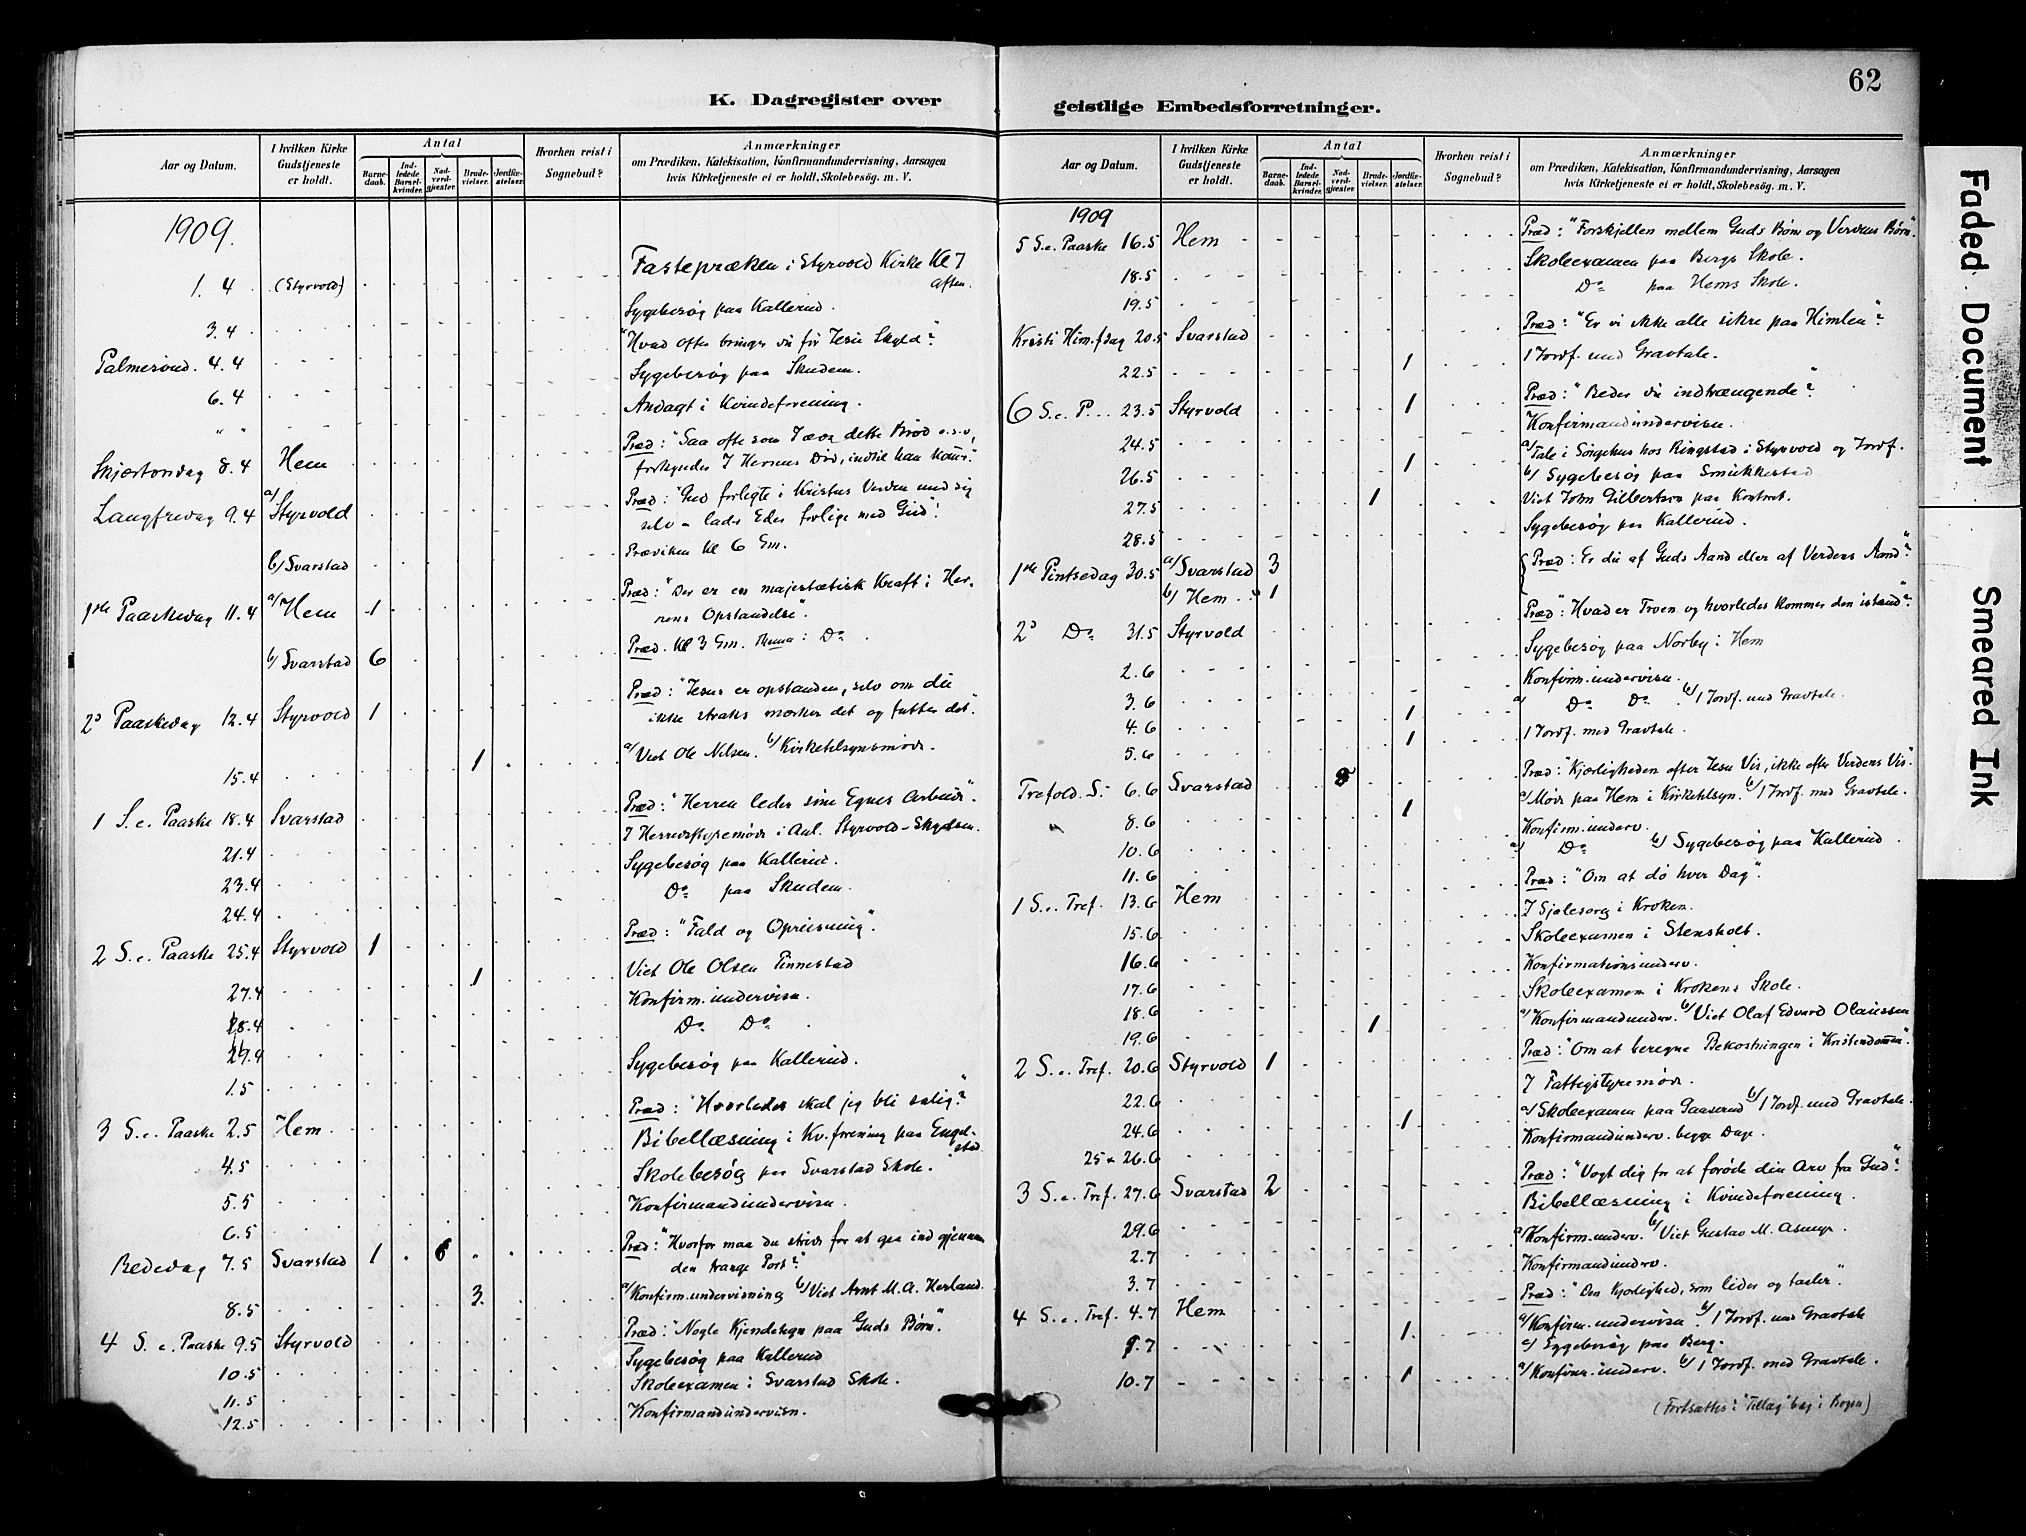 K. Dagregister over
Aar og Datum.
I hvilken Kirke Gudstjeneste er holdt.
Antal
Barne-daab.
Ind-ledede Barsel-kvinder.
Nad-verd-gjester.
Brude-vielser.
Jordfæ-stelser.
Hvorhen reist i Sognebud?
Anmærkninger
om Prædiken, Katekisation, Konfirmandundervisning, Aarsagen
hvis Kirketjeneste ei er holdt, Skolebesøg. m. V.
1909.
1. 4 (Styrvold) Fastepræken i Styrvold Kirke Kl 7
Aften.
3. 4 Sygebesøg paa Kallerud.
Palmesønd. 4. 4 "Hvad ofte bringer du for Jesu Skyld"?
6. 4 Sygebesøg paa Skudem.
" " Andagt i Kvindeforening.
Skjærtorsdag 8. 4 Hem Præd: "Saa ofte som I æde dette Brød o.s.v,
forkynder I Herrens Død, indtil han komr."
Langfredag 9. 4 a/ Styrvold Præd: "Gud forligte i Kristus Verden med sig
selv – lader Eder forlige med Gud".
b/ Svarstad Prædiken Kl 6 Em.
1ste Paaskedag 11. 4 a/ Hem 1 Præd: "Der er en majestætisk Kraft i Her-
rens Opstandelse".
b/ Svarstad 6 Præd. Kl 3 Em. Thema: Do
2d Paaskedag 12. 4 Styrvold 1 Præd: "Jesus er opstanden, selv om du
ikke straks mærker det og fatter det".
15. 4 1 a/ Viet Ole Nilsen. b/ Kirketilsynsmøde.
1 S. e. Paaske 18. 4 Svarstad Præd: "Herren leder sine Egnes Arbeide".
21. 4 I Herredsstyremøde i Anl. Styrvold–Skydsen.
23. 4 Sygebesøg paa Kallerud.
24. 4 Do paa Skudem.
2 S. e. Paaske 25. 4 Styrvold 1 Præd: "Fald og Opreisning".
27. 4 1 Viet Ole Olsen Tinnestad
28. 4 Konfirm. undervisn.
29. 4 Do Do
1. 5 Sygebesøg paa Kallerud.
3 S. e. Paaske 2. 5 Hem Præd: "Hvorledes skal jeg bli salig"?
4. 5 Bibellæsning i Kv. forening paa Engel-
stad
5. 5 Skolebesøg paa Svarstad Skole.
6. 5 Konfirmandundervisn.
Bededag 7. 5 Svarstad 1 Præd: "Hvorfor maa du stride for at gaa ind gjennem
den trange Port"?
8. 5 3 a/ Konfirm. undervisning b/ Viet Arnt M. A. Herland.
4 S. e. Paaske 9. 5 Styrvold Præd: "Nogle Kjendetegn paa Guds Børn".
10. 5 Sygebesøg paa Kallerud
11. 5 Skoleexamen i Svarstad Skole.
12. 5 Konfirmandundervisn.
62
geistlige Embedsforretninger.
Aar og Datum.
I hvilken Kirke Gudstjeneste er holdt.
Antal
Barne-daab.
Ind-ledede Barsel-kvinder.
Nad-verd-gjester.
Brude-vielser.
Jordfæ-stelser.
Hvorhen reist i Sognebud?
Anmærkninger
om Prædiken, Katekisation, Konfirmandundervisning, Aarsagen
hvis Kirketjeneste ei er holdt, Skolebesøg. m. V.
1909
5 S. e. Paaske 16. 5 Hem Præd: "Forskjellen mellem Guds Børn og Verdens Børn".
18. 5 Skoleexamen paa Bergs Skole.
19. 5 Do paa Hems Skole.
Kristi Him. f. dag 20. 5 Svarstad Præd: "Er vi ikke alle sikre paa Himlen"?
22. 5 1 1 Jordf. med Gravtale.
6 S. e. P. 23. 5 Styrvold 1 Præd: "Beder du indtrængende"?
24. 5 Konfirmandundervisn.
26. 5 1 a/ Tale i Sørgehus hos Ringstad i Styrvold og Jordf.
b/ Sygebesøg paa Smukkestad
27. 5 1 Viet John Gilbertsen paa Kontoret.
28. 5 Sygebesøg paa Kallerud.
1ste Pintsedag 30. 5 a/ Svarstad 3 Præd: Er du af Guds Aand eller af Verdens Aand"?
b/ Hem 1
2d Do 31. 5 Styrvold Præd: "Hvad er Troen og hvorledes kommer den istand"?
2. 6 Sygebesøg paa Norby i Hem
3. 6 Konfirm. undervisn.
4. 6 1 a/ Do Do b/ 1 Jordf. med Gravtale.
5. 6 1 1 Jordf. med Gravtale.
Trefold. S. 6. 6 Svarstad 8 Præd: "Kjærligheden efter Jesu Vis, ikke efter Verdens Vis".
8. 6 1 a/ Møde paa Hem i Kirketilsyn. b/ 1 Jordf. med Gravtale.
10. 6 Konfirm. underv.
11. 6 a/ Do b/ Sygebesøg paa Kallerud
1 S. e. Tref. 13. 6 Hem Præd: "Om at dø hver Dag".
15. 6 I Sjælesorg i Kroken.
16. 6 Skoleexamen i Stensholt.
17. 6 Konfirmationsunderv.
18. 6 Skoleexamen i Krokens Skole.
19. 6 1 a/ Konfirmandunderv. b/ Viet Olaf Edvard Olaussen
2 S. e. Tref. 20. 6 Styrvold 1 Præd: "Om at beregne Bekostningen i Kristendommen".
22. 6 I Fattigstyremøde.
24. 6 1 a/ Skoleexamen paa Gaaserud b/ 1 Jordf. med Gravtale.
25 + 26. 6 Konfirmandunderv. begge Dage.
3 S. e. Tref. 27. 6 Svarstad 2 Præd: "Vogt dig for at forøde din Arv fra Gud".
29. 6 Bibellæsning i Kvindeforening.
2. 7 a/ Konfirm. underv. b/ Viet Gustav M.
3. 7 Konfirmandunderv.
4 S. e. Tref. 4. 7 Hem Præd: "Den Kjærlighed, som lider og taaler".
9. 7 1 a/ Konfirm. undervisn. b/ 1 Jordf. med Gravtale
c/ Sygebesøg paa Berg.
10. 7 1 a/ Konfirm. underv. b/ 1 Jordf. med Gravtale.
(Fortsættes i "Tillæg" bag i Bogen)
Faded Document
Smeared Ink